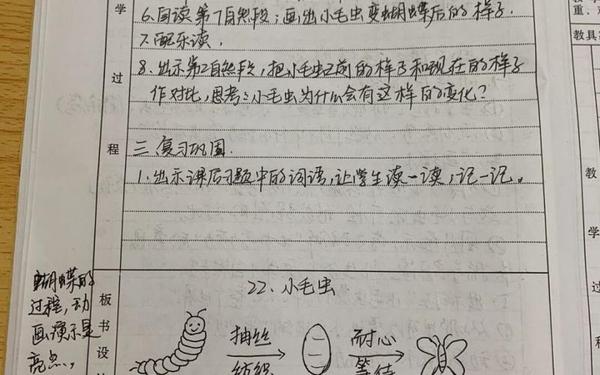 学
6.自读第7自然段;画出小毛虫变蝴蝶后的样子。
7.配乐读。
8.出示第2自然段,把小毛虫之前的样子和现在的样子
作对比,思考:小毛虫为什么会有这样的变化?
过
程
三.复习巩固.
1.出示课后习题中的词语,让学生读一读,记一记。
蝴蝶的
过程,动
画演示是
亮点。
板书设
22.小毛虫
抽丝
纺织
耐心
等待
教具
教
学
过